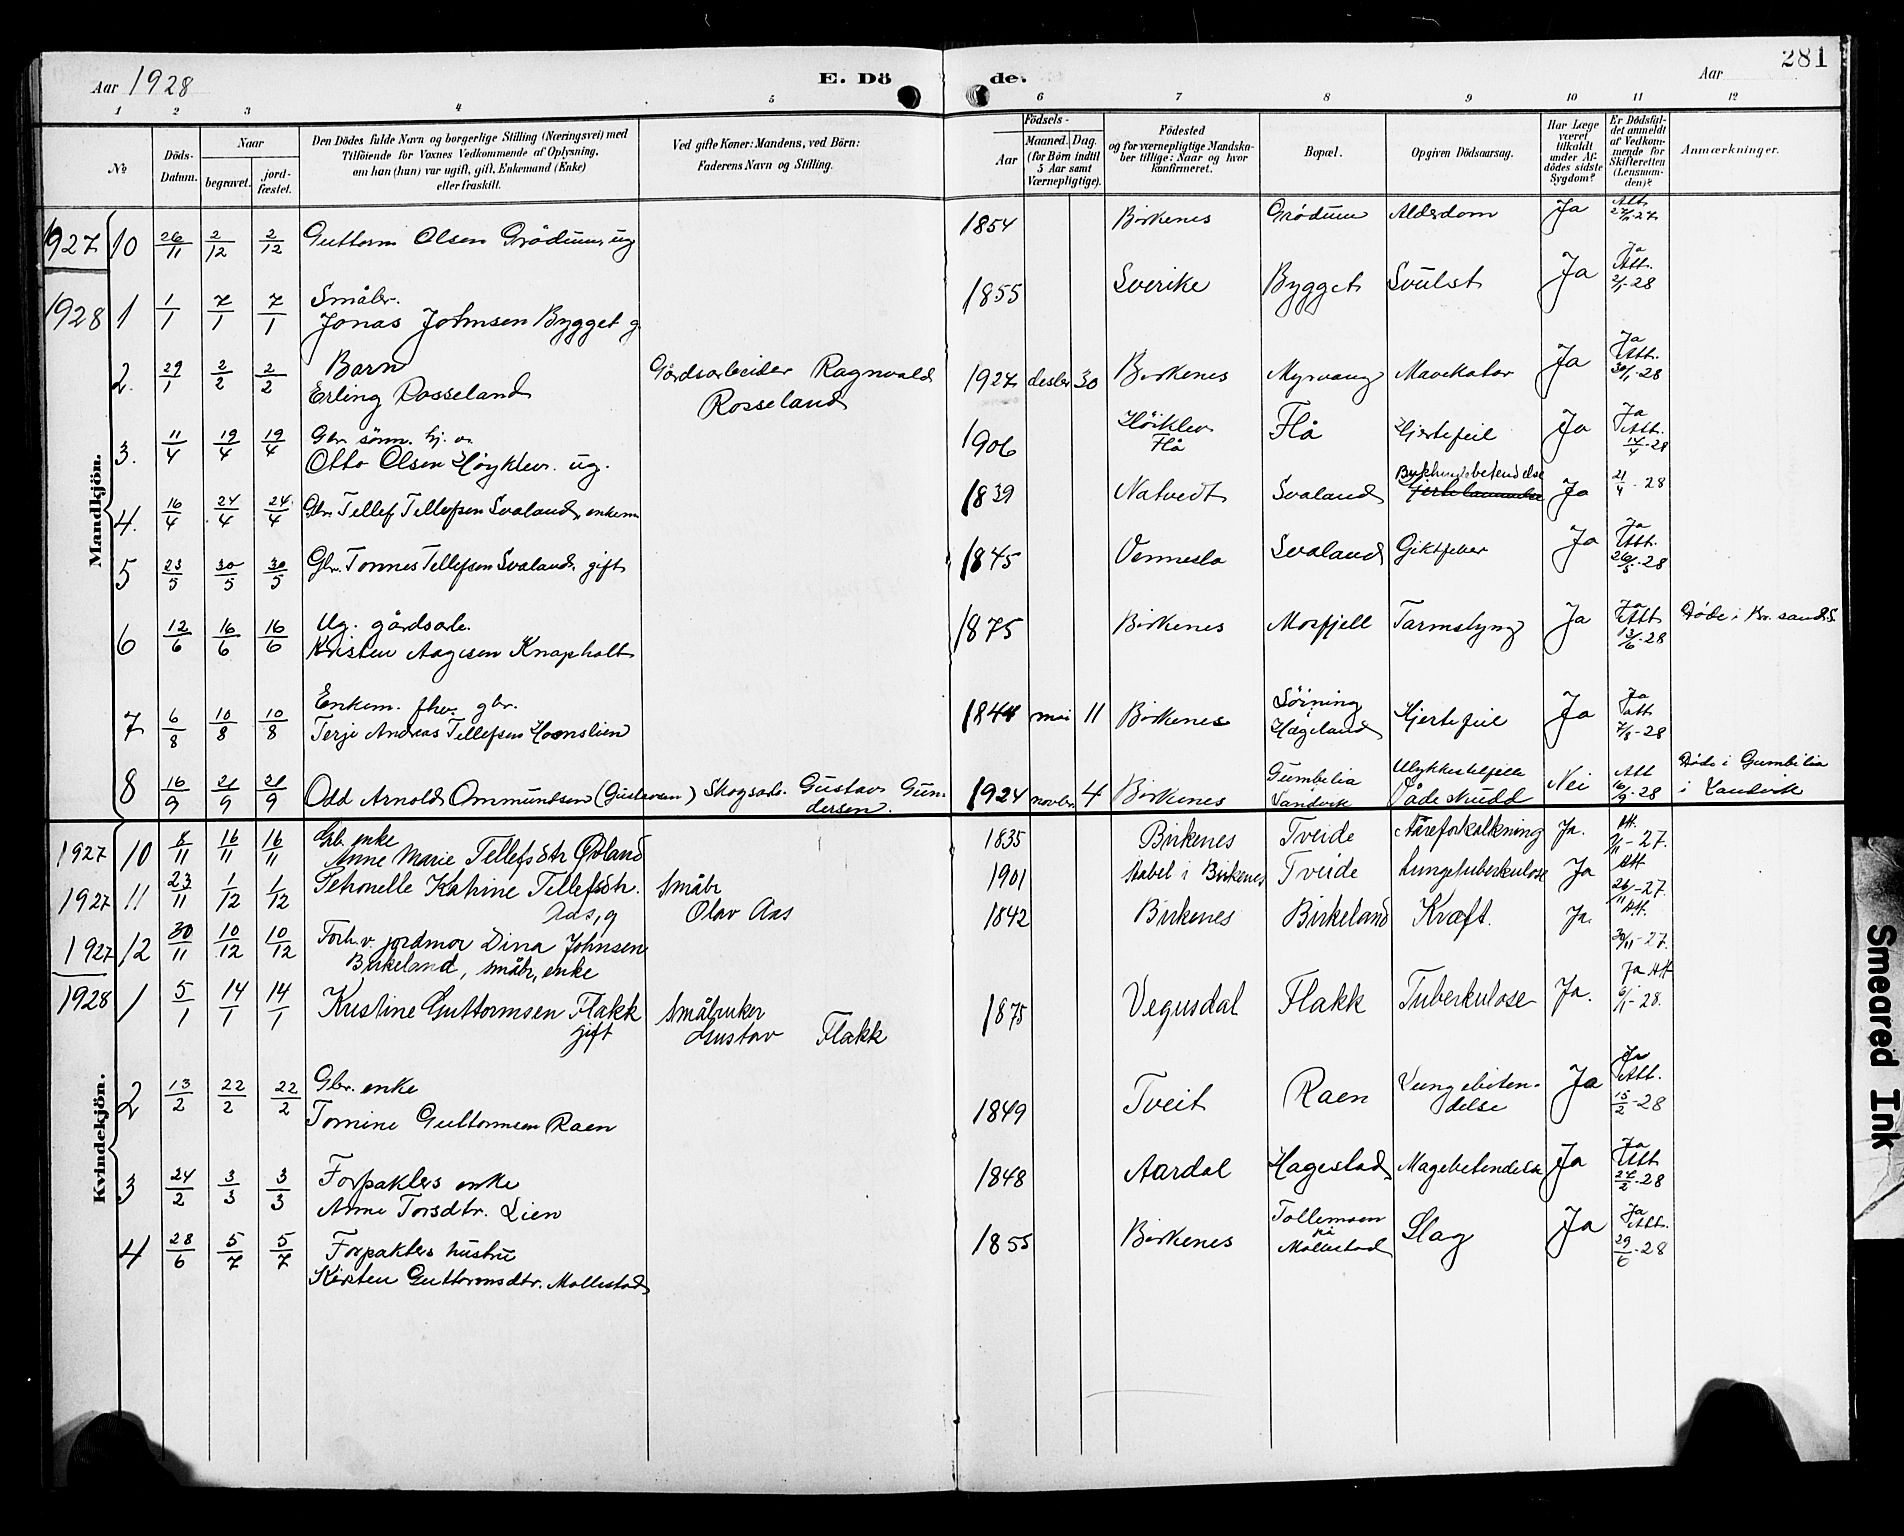 281
Aar 1928
E. Dö de.
Aar
1 2 3 4 5 6 7 8 9 10 11 12
No
Döds-Datum.
Naar
begravet.
jord-fæstet.
Den Dödes fulde Navn og borgerlige Stilling (Næringsvei) med
Tilföiende for Voxnes Vedkommende af Oplysning,
om han (hun) var ugift, gift, Enkemand (Enke)
eller fraskilt.
Ved gifte Koner: Mandens, ved Börn:
Faderens Navn og Stilling.
Födsels-
Aar
Maaned. Dag.
(for Börn indtil
5 Aar samt
Værnepligtige).
Födested
og for værnepligtige Mandska-
ber tillige: Naar og hvor
konfirmeret.
Bopæl.
Opgiven Dödsaarsag.
Har Læge
været
tilkaldt
under Af-
dödes sidste
Sygdom?
Er Dödsfal-
det anmeldt
af Vedkom-
mende for
Skifteretten
(Lensman-
den)?
Anmærkninger.
Mandkjön.
1927 10 26/11 2/12 2/12 Guttorm Olsen Grødum, ug 1854 Birkenes Grødum Alderdom Ja Att.
1928 1 1/1 7/1 7/1 Småbr.
Jonas Johnsen Bygget g. 1855 Sverike Bygget Svulst Ja Ja Att. 2/1-28
2. 29/1 2/2 2/2 Barn
Erling Rosseland Gårdsarbeider Ragnvald
Rosseland 1927 desbr 30 Birkenes Myrvang Mavekatar Ja Ja Att. 30/1-28
3. 11/4 19/4 19/4 Gbr. sønn.
Otto Olsen Høyklev. ug. 1906 Høiklev
Flå Flå Hjertefeil Ja Ja Att. 14/4-28
4. 16/4 24/4 24/4 Gbr. Tellef Tellefsen Svaland, enkem 1839 Natvedt Svaland Bukhindebetendelse Ja 21/4-28
5 23/5 30/5 30/5 Gbr. Tønnes Tellefsen Svaland, gift 1845 Vennesla Svaland Giktfeber Ja Ja Att. 26/5-28
6 12/6 16/6 16/6 Ug. gårdsarb.
Kristen Aagesen Knapholt 1875 Birkenes Mosfjell Tarmslyng Ja Ja Att 13/6-28 Døde i Kr.sand S.
7 6/8 10/8 10/8 Enkem. fhv. gbr.
Terje Andreas Tellefsen 1844 mai 11 Birkenes
Hægeland Hjertefeil Ja Ja att 7/8-28
8 16/9 21/9 21/9 Odd Arnold Ommundsen (Gustavsen) Skogsarb. Gustav Gun-
dersen. 1924 novbr 4 Birkenes Gumbilia
Landvik Ulykkestilfelle
Vådeskudd Nei Att 16/9-28 Døde i Gumbilia
i Landvik
Kvindekjön.
1927 10 8/11 16/11 16/11 Gbr. enke
Anne Marie Tellefsdtr Øvland 1835 Birkenes Tveide Åreforkalkning Ja. Att. 9/11-27.
1927 11 23/11 1/12 1/12 Petronelle Katrine Tellefsdtr.
Aas, g Småbr
Olav Aas 1901 Stabel i Birkenes Tveide Lungetuberkulose Ja Att 26/11-27.
1927 12 30/11 10/12 10/12 Forh.v. jordmor Dina Johnsen
Birkeland, småbr, enke 1842 Birkenes Birkeland Kræft. Ja. Att. 30/11-27.
1928 1 5/1 14/1 14/1 Kristine Guttormsen Flakk
gift Småbruker
Gustav Flakk 1875 Vegusdal Flakk Tuberkulose Ja. Ja Att 6/1-28.
2 13/2 22/2 22/2 Gbr. enke
Tomine Guttormsen Raen 1849 Tveit Raen Lungebeten-
delse Ja Ja Att. 15/2-28
3 24/2 3/3 3/3 Forpakters enke
Anne Torsdtr. Lien 1848 Aardal Hagestad Magebetendelse Ja Ja Att 27/2-28
4 28/6 5/7 5/7 Forpakters hustru
Kirsten Guttormsdtr. Mollestad 1855 Birkenes
på
Mollestad Slag Ja Ja Att. 29/6-28
Smeared Ink